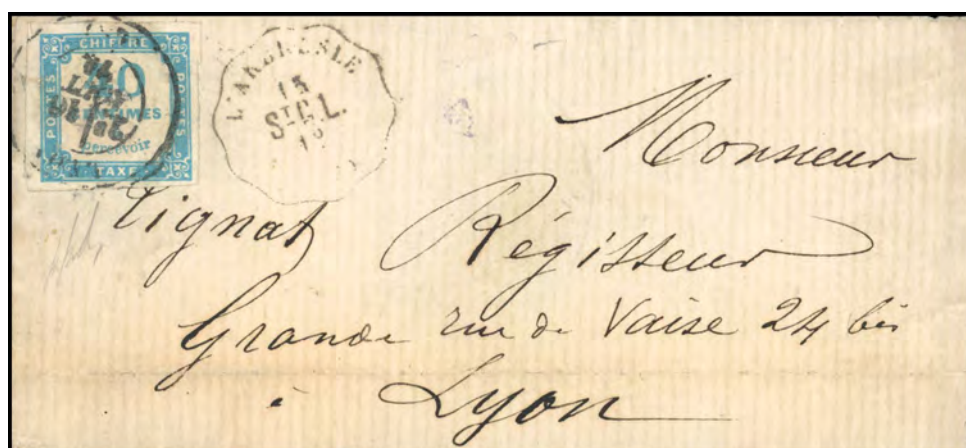 CHIFFRE
POSTES
POSTES
CENTIMES
percevoir
TAXE
L'ARBRESLE
15
ST G.L.
Monsieur
Tignat Régisseur
Grande rue de Vaise 24 bis
à Lyon